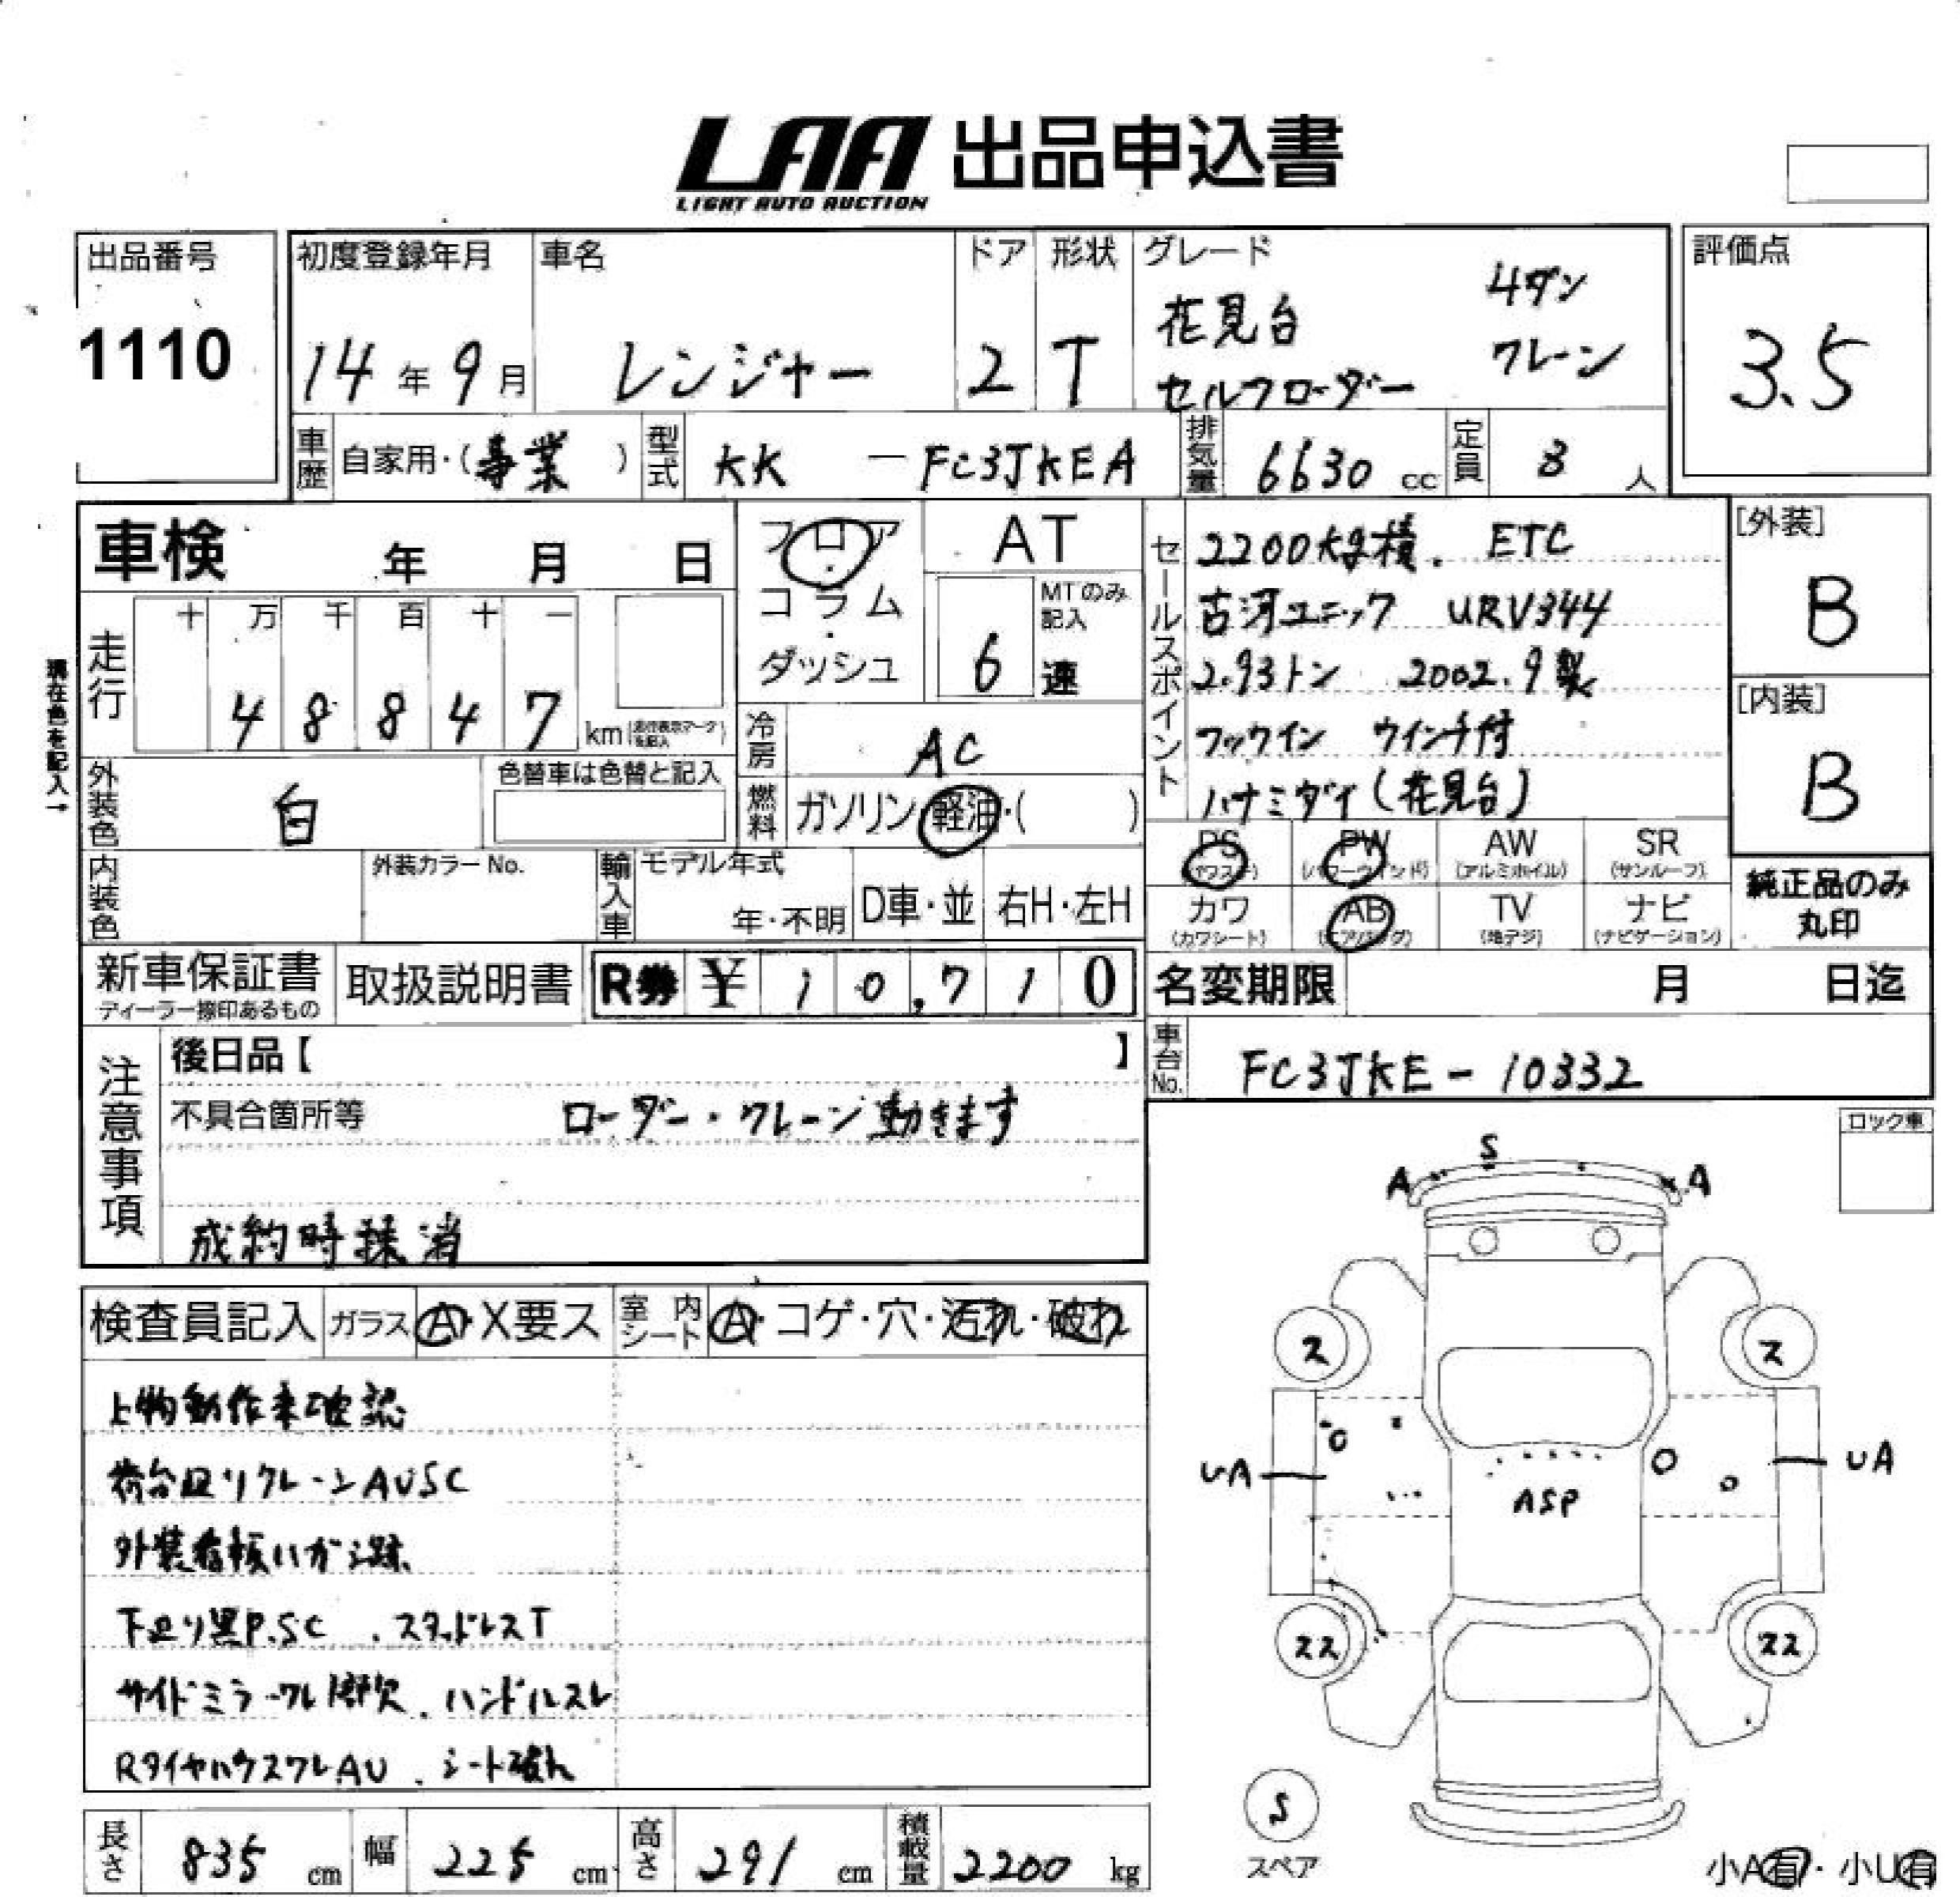 LAA 出品申込書
LIGHT AUTO AUCTION
出品番号
1110
初度登録年月
14年9月
車名
レンジャー
ドア
2
形状
T
グレード
花見台 4ダン
セルフローダー クレーン
評価点
3.5
車歴 自家用・(事業)
型式 KK - FC3JKEA
排気量 6630 cc
定員 3人
車検 年 月 日
フロア・コラム・ダッシュ
AT
MTのみ記入
6速
走行
十 万 千 百 十 一
4 8 8 4 7 km (走行表示マークを記入)
現在色を記入→
冷房 AC
外装色 白
色替車は色替と記入
燃料 ガソリン・軽油・( )
内装色
外装カラーNo.
輸入車 モデル年式
年・不明 D車・並 右H・左H
セールスポイント
2200kg積. ETC
古河ユニック URV344
2.93トン 2002.9製
フックイン ウインチ付
ハナミダイ(花見台)
[外装]
B
[内装]
B
PS (パワステ) PW (パワーウィンド) AW (アルミホイル) SR (サンルーフ)
カワ (カワシート) AB (エアバッグ) TV (地デジ) ナビ (ナビゲーション)
純正品のみ
丸印
新車保証書
ディーラー捺印あるもの
取扱説明書
R券 ¥ 10,710
名変期限 月 日迄
注意事項
後日品【 】
不具合箇所等 ローダー・クレーン動きます
成約時抹消
車台No. FC3JKE-10332
ロック車
検査員記入 ガラス A・X要ス 室内シート A・コゲ・穴・汚れ・破れ
上物動作未確認
荷台廻りクレーンAUSC
外装看板ハガシ跡
下廻り黒P.SC . スタッドレスT
サイドミラーワレ 脚欠. ハンドルスレ
RタイヤハウスワレAU . シート破れ
S
A A
ス ス
UA UA
ASP
スス スス
S
スペア
小A有・小U有
長さ 835 cm 幅 225 cm 高さ 291 cm 積載量 2200 kg